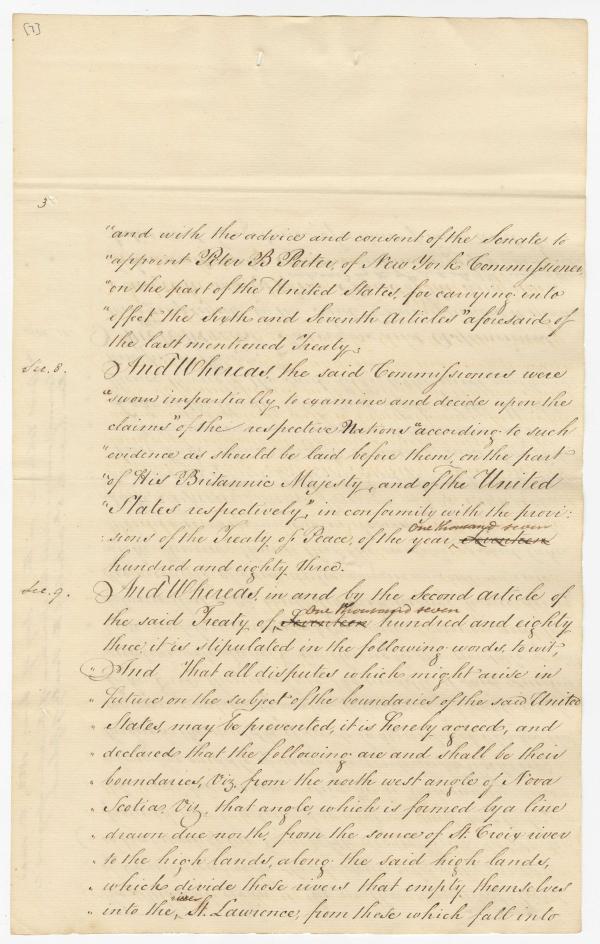 [7]
3
"and with the advice and consent of the Senate to
"appoint Peter B Porter, of New York Commissioner
"on the part of the United States, for carrying into
"effect the Sixth and Seventh Articles" aforesaid of
the last mentioned Treaty;
Sec. 8. And Whereas, the said Commissioners were
"sworn impartially to examine and decide upon the
claims" of the respective Nations "according to such
"evidence as should be laid before them, on the part
"of His Britannic Majesty, and of the United
"States respectively", in conformity with the provi:
:sions of the Treaty of Peace, of the year, one thousand seven Seventeen
hundred and eighty three.
Sec. 9. And Whereas, in and by the Second article of
the said Treaty of, One thousand seven Seventeen hundred and eighty
three, it is stipulated in the following words, to wit,
" And that all disputes which might arise in
" future on the subject of the boundaries of the said United
" States, may be prevented, it is hereby agreed, and
" declared that the following are and shall be their
" boundaries, Viz. from the north west angle of Nova
" Scotia. Viz. that angle, which is formed by a line
" drawn due north, from the source of St. Croix river
" to the high lands, along the said high lands,
" which divide those rivers that empty themselves
" into the river St. Lawrence, from those which fall into